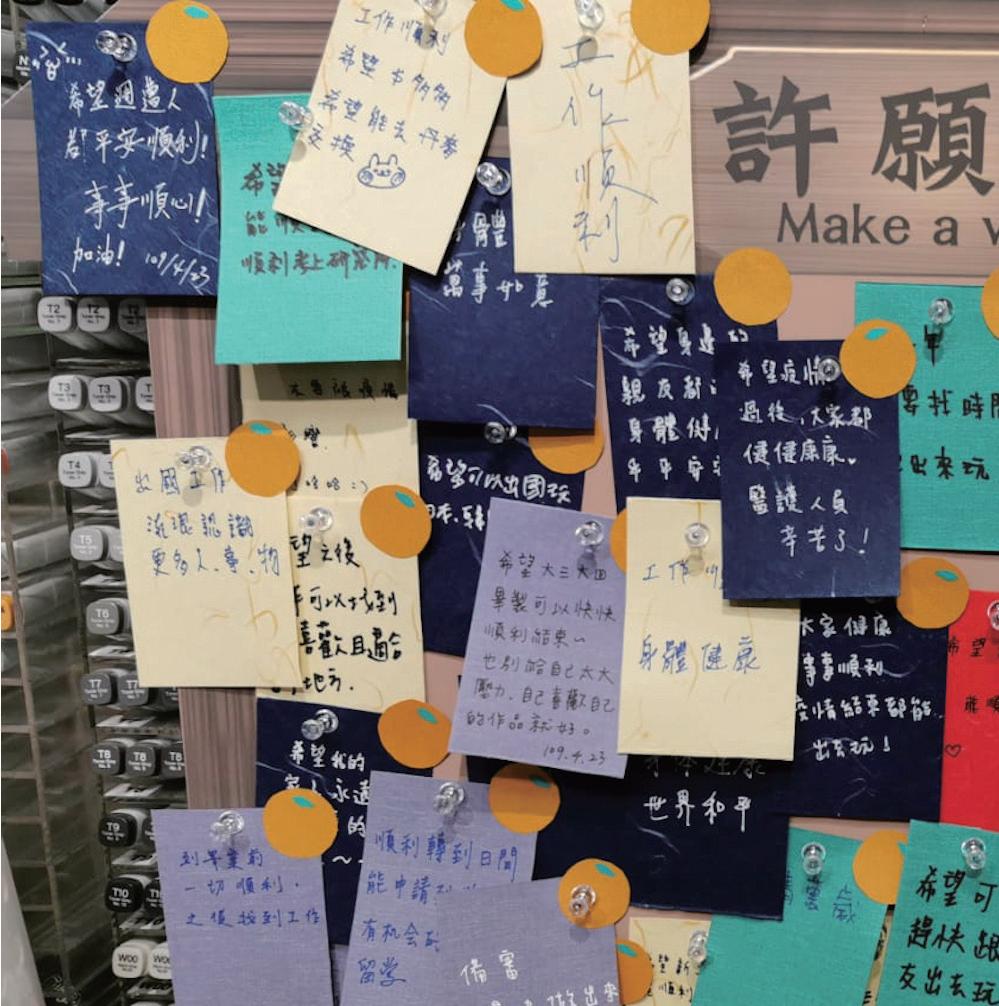 許願
Make a w
希望週遭人
都平安順利!
事事順心!
加油! 109/4/23
希
能順
順利考上研究所.
工作順利
希望卡多多
希望能去丹麥
交換
工作順利
身體
萬事如意
希望身邊的
親友都
身體健
平平安安
希望疫情
過後,大家都
健健康康。
醫護人員
辛苦了!
要找時間
出來玩
出國工作
流浪認識
更多人、事、物
哈哈:)
望之後
可以找到
喜歡且適合
的地方.
希望可以出國玩
日本、韓
希望大三大四
畢製可以快快
順利結束~
也別給自己太大
壓力、自己喜歡自己
的作品就好。
109.4.23
工作順
身體健康
大家健康
事事順利
疫情結束都能
出去玩!
希望
希望我的
家人永遠
的
身体健康
世界和平
到畢業前
一切順利.
之後找到工作
順利轉到日間
能申請到
有机会到
留學
備審
做出來
希望可
趕快跟
友出去玩
T2
T2
T2
T3
T3
T
T4
T5
T6
T7
T7
T8
T8
T8
T9
T10
W00
W00